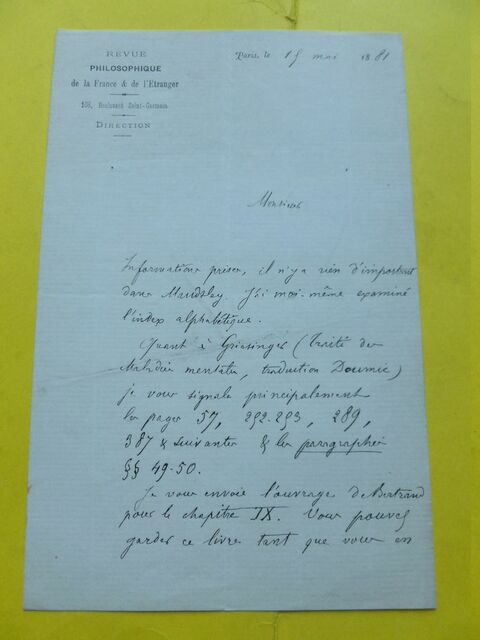 REVUE
PHILOSOPHIQUE
de la France & de l'Etranger
108, Boulevard Saint-Germain
DIRECTION
Paris, le 15 mai 1881
Monsieur
Informations prises, il n'y a rien d'important
dans Maudsley. J'ai moi-même examiné
l'index alphabétique.
Quant à Griesinger (Traité des
Maladies mentales, traduction Doumic)
je vous signale principalement
les pages 57, 252-253, 289,
387 & suivantes & les paragraphes
§§ 49-50.
Je vous envoie l'ouvrage de Bertrand
pour le chapitre IX. Vous pouvez
garder ce livre tant que vous en